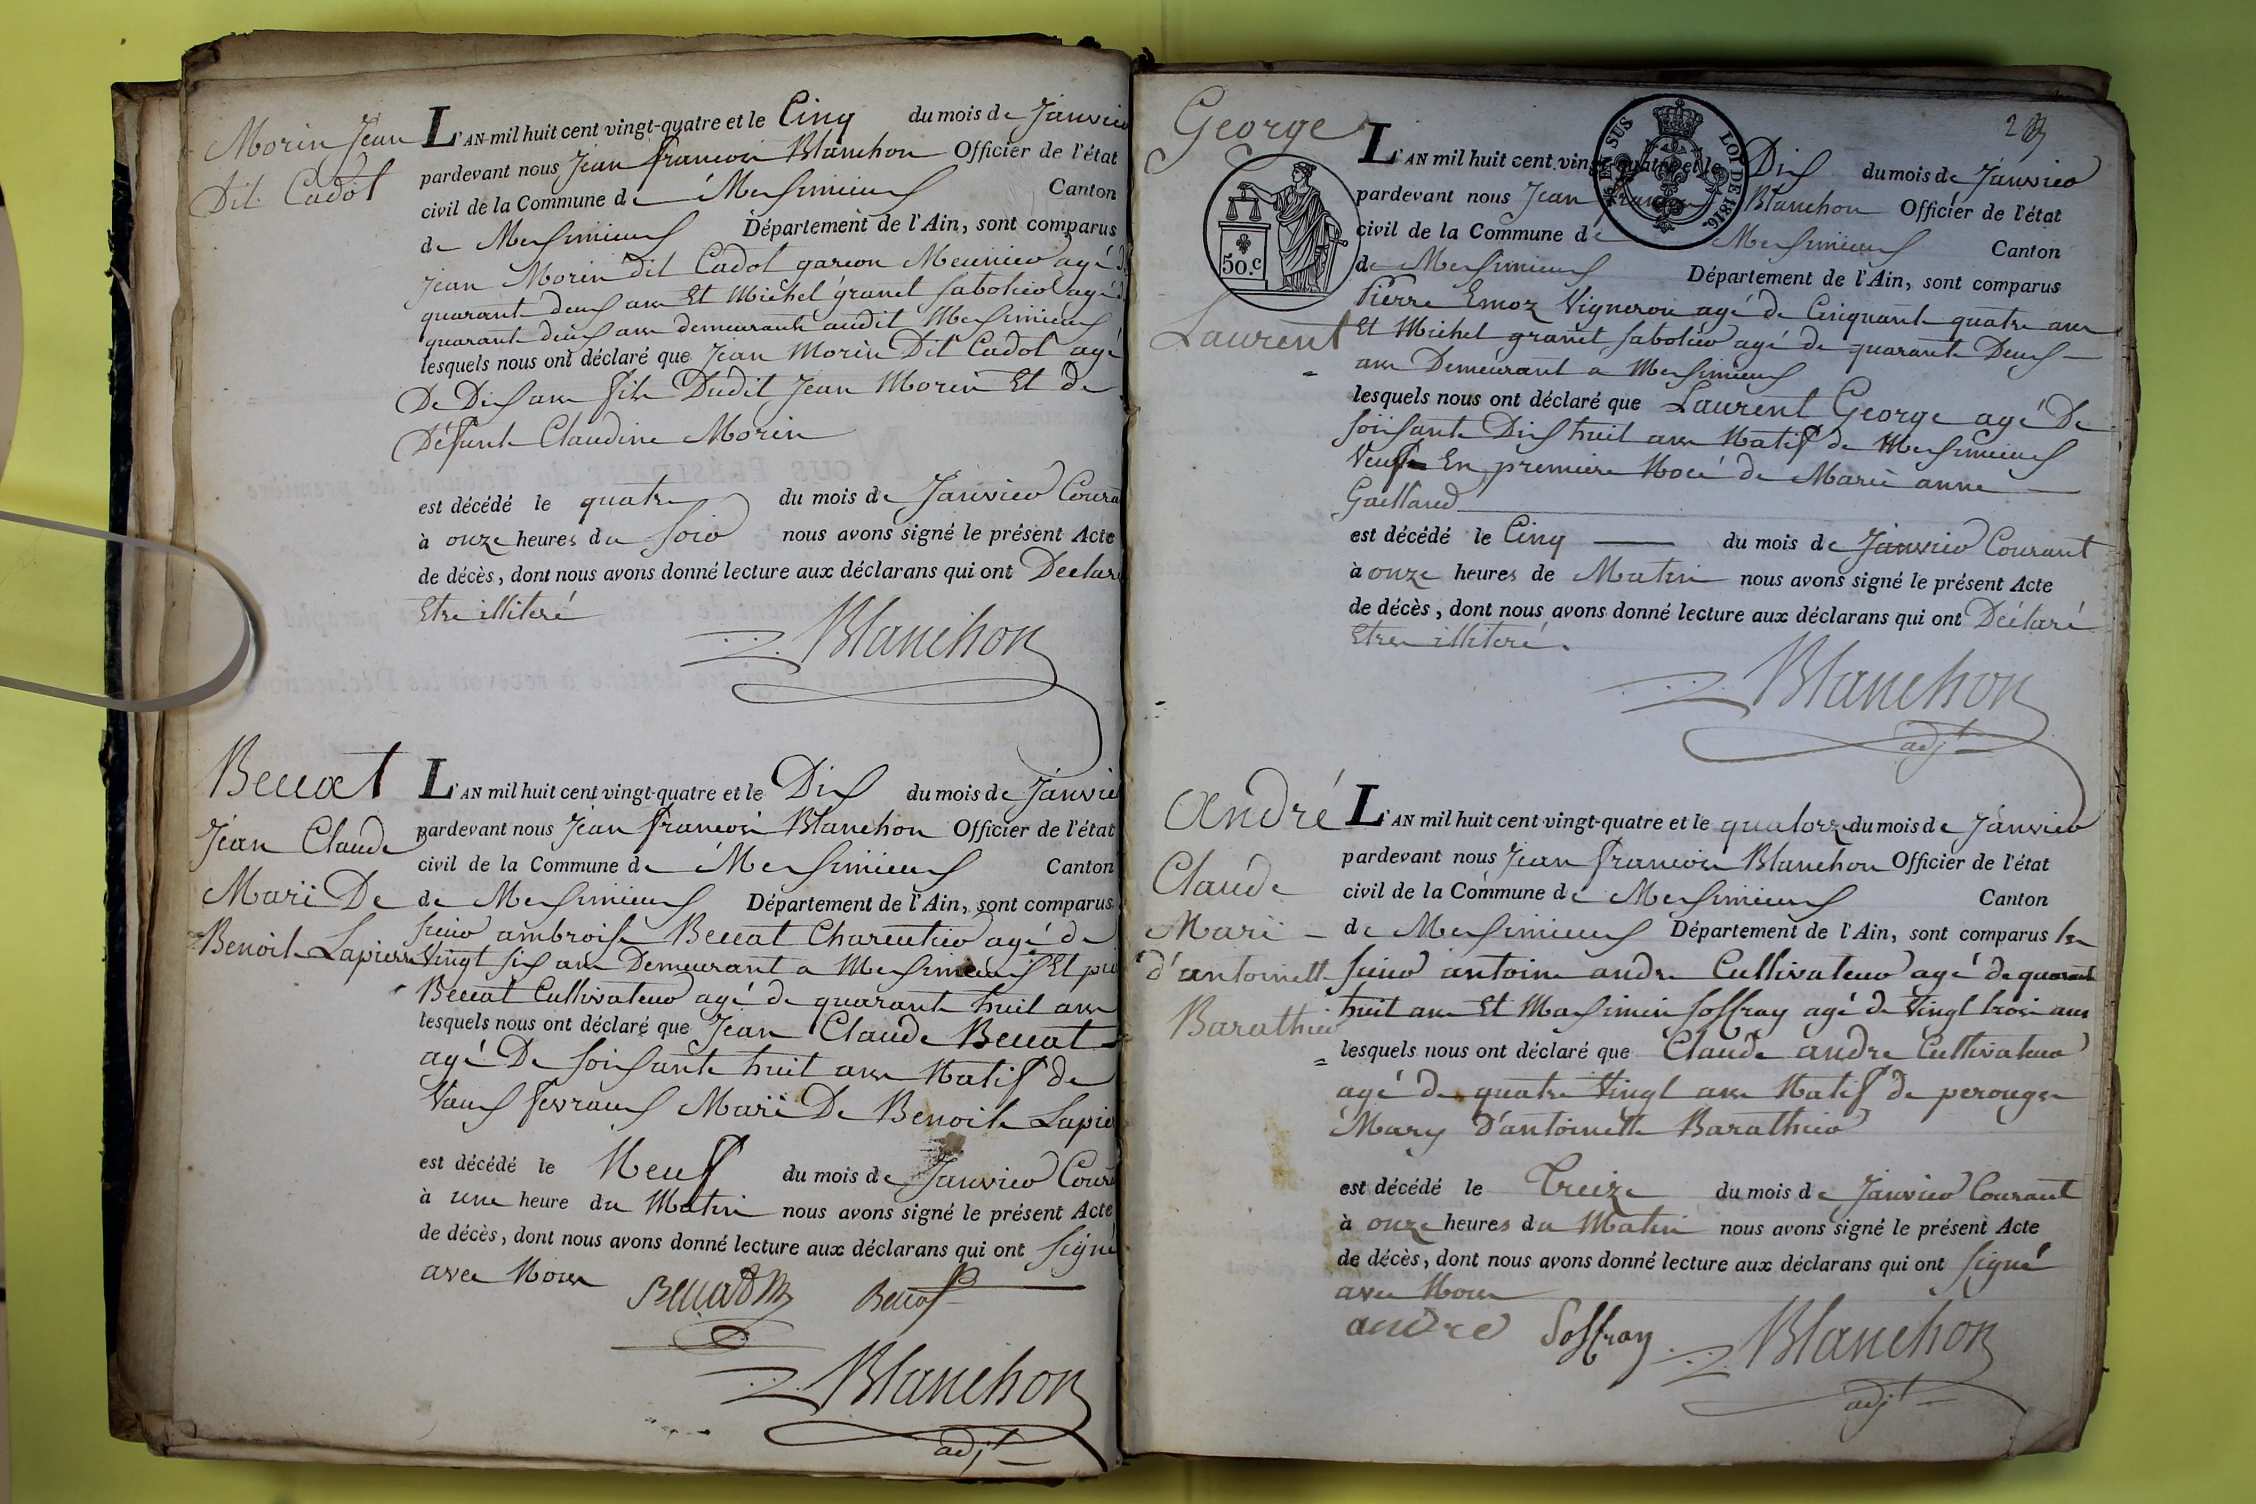 Morin Jean
Dit Cadot
L'AN mil huit cent vingt-quatre et le Cinq du mois de Janvier
pardevant nous Jean francois Blanchon Officier de l'état
civil de la Commune de Meximieux Canton
de Meximieux Département de l'Ain, sont comparus
Jean Morin dit Cadot garcon Meunier agé
quarante deux ans Et Michel granet Sabotier agé
quarante deux ans demeurants audit Meximieux
lesquels nous ont déclaré que Jean Morin Dit Cadot agé
De Dix ans fils Dudit Jean Morin Et de
Défunte Claudine Morin
est décédé le quatre du mois de Janvier
à onze heures du Soir nous avons signé le présent Acte
de décès, dont nous avons donné lecture aux déclarans qui ont Declaré
Etre illiteré
Blanchon
Beccat
Jean Claude
Mari De
Benoite Lapierre
L'AN mil huit cent vingt-quatre et le Dix du mois de Janvier
pardevant nous Jean francois Blanchon Officier de l'état
civil de la Commune de Meximieux Canton
de Meximieux Département de l'Ain, sont comparus
Sieur ambroise Beccat Charcutier agé de
Vingt six ans Demeurant a Meximieux Et
Beccat Cultivateur agé de quarante huit ans
lesquels nous ont déclaré que Jean Claude Beccat
agé De soixante huit ans Natif de
Vaux fevroux Marié De Benoite
est décédé le Neuf du mois de Janvier
à une heure du Matin nous avons signé le présent Acte
de décès, dont nous avons donné lecture aux déclarans qui ont signé
avec Nous
Beccat
Blanchon
adjt
2
George
50.c
EN SUS LOI DE 1816.
Laurent
L'AN mil huit cent vingt-quatre et le Dix du mois de Janvier
pardevant nous Jean francois Blanchon Officier de l'état
civil de la Commune de Meximieux Canton
de Meximieux Département de l'Ain, sont comparus
Pierre Emoz Vigneron agé de Cinquante quatre ans
Et Michel granet Sabotier agé de quarante Deux
ans Demeurant a Meximieux
lesquels nous ont déclaré que Laurent George agé De
soixante Dix huit ans Natif de Meximieux
Veuf En premiere Noce de Marie anne
Gaillard
est décédé le Cinq du mois de Janvier Courant
à onze heures de Matin nous avons signé le présent Acte
de décès, dont nous avons donné lecture aux déclarans qui ont Déclaré
Etre illiteré.
Blanchon
adjt
André
Claude
Mari
d'antoinette
Barathier
L'AN mil huit cent vingt-quatre et le quatorze du mois de Janvier
pardevant nous Jean francois Blanchon Officier de l'état
civil de la Commune de Meximieux Canton
de Meximieux Département de l'Ain, sont comparus les
Sieur antoine andre Cultivateur agé de quarante
huit ans Et Maximin Soffray agé de Vingt trois ans
lesquels nous ont déclaré que Claude andre Cultivateur
agé de quatre Vingt ans Natif de perouges
Mary D'antoinette Barathier
est décédé le Treize du mois de Janvier Courant
à onze heures du Matin nous avons signé le présent Acte
de décès, dont nous avons donné lecture aux déclarans qui ont signé
avec Nous
andre Soffray Blanchon
adjt